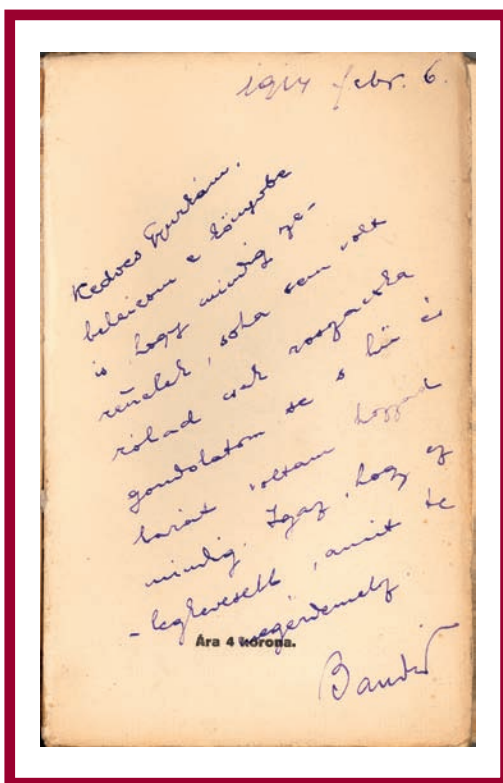 1914 febr. 6.
Kedves Gyurkám,
beleirom e könyvbe
is hogy mindig sze-
rettelek, soha sem volt
rólad csak rosszacska
gondolatom se s hű
barát voltam hozzád
mindig. Igaz, hogy ez
a legkevesebb, amit te
megérdemelsz.
Ára 4 korona.
Bandid